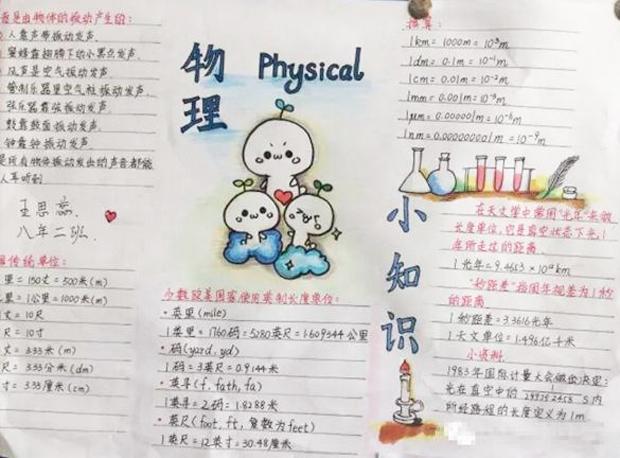 音是由物体的振动产生的:
人靠声带振动发声.
蜜蜂靠翅膀下的小黑点发声.
风声是空气振动发声.
管制乐器里空气柱振动发声.
弦乐器靠弦振动发声.
鼓靠鼓面振动发声.
钟靠钟振动发声.
是所有物体振动发出的声音都能
人耳听到
王思蕊
八年二班.
传统单位:
里=150丈=500米(m)
里=1公里=1000米(m)
丈=10尺
尺=10寸
丈=3.33米(m)
尺=3.33分米(dm)
寸=3.33厘米(cm)
物理
Physical
少数欧美国家使用英制长度单位:
·英里(mile)
1英里=1760码=5280英尺=1.609344公里
·码(yard,yd)
1码=3英尺=0.9144米
·英寻(f.fath,fa)
1英寻=2码=1.8288米
·英尺(foot,ft,复数为feet)
1英尺=12英寸=30.48厘米
换算:
1km=1000m=10³m
1dm=0.1m=10⁻¹m
1cm=0.01m=10⁻²m
1mm=0.001m=10⁻³m
1μm=0.000001m=10⁻⁶m
1nm=0.000000001m=10⁻⁹m
小知识
在天文学中常用"光年"来做
长度单位,它是真空状态下光1
年所走过的距离
1光年=9.4653×10¹²km
"秒距差"指周年视差为1秒
的距离
1秒距差=3.3616光年
1天文单位=1.496亿千米
小资料
1983年国际计量大会做出决定:
光在真空中的1/299792458 s内
所经路程的长度定义为1m